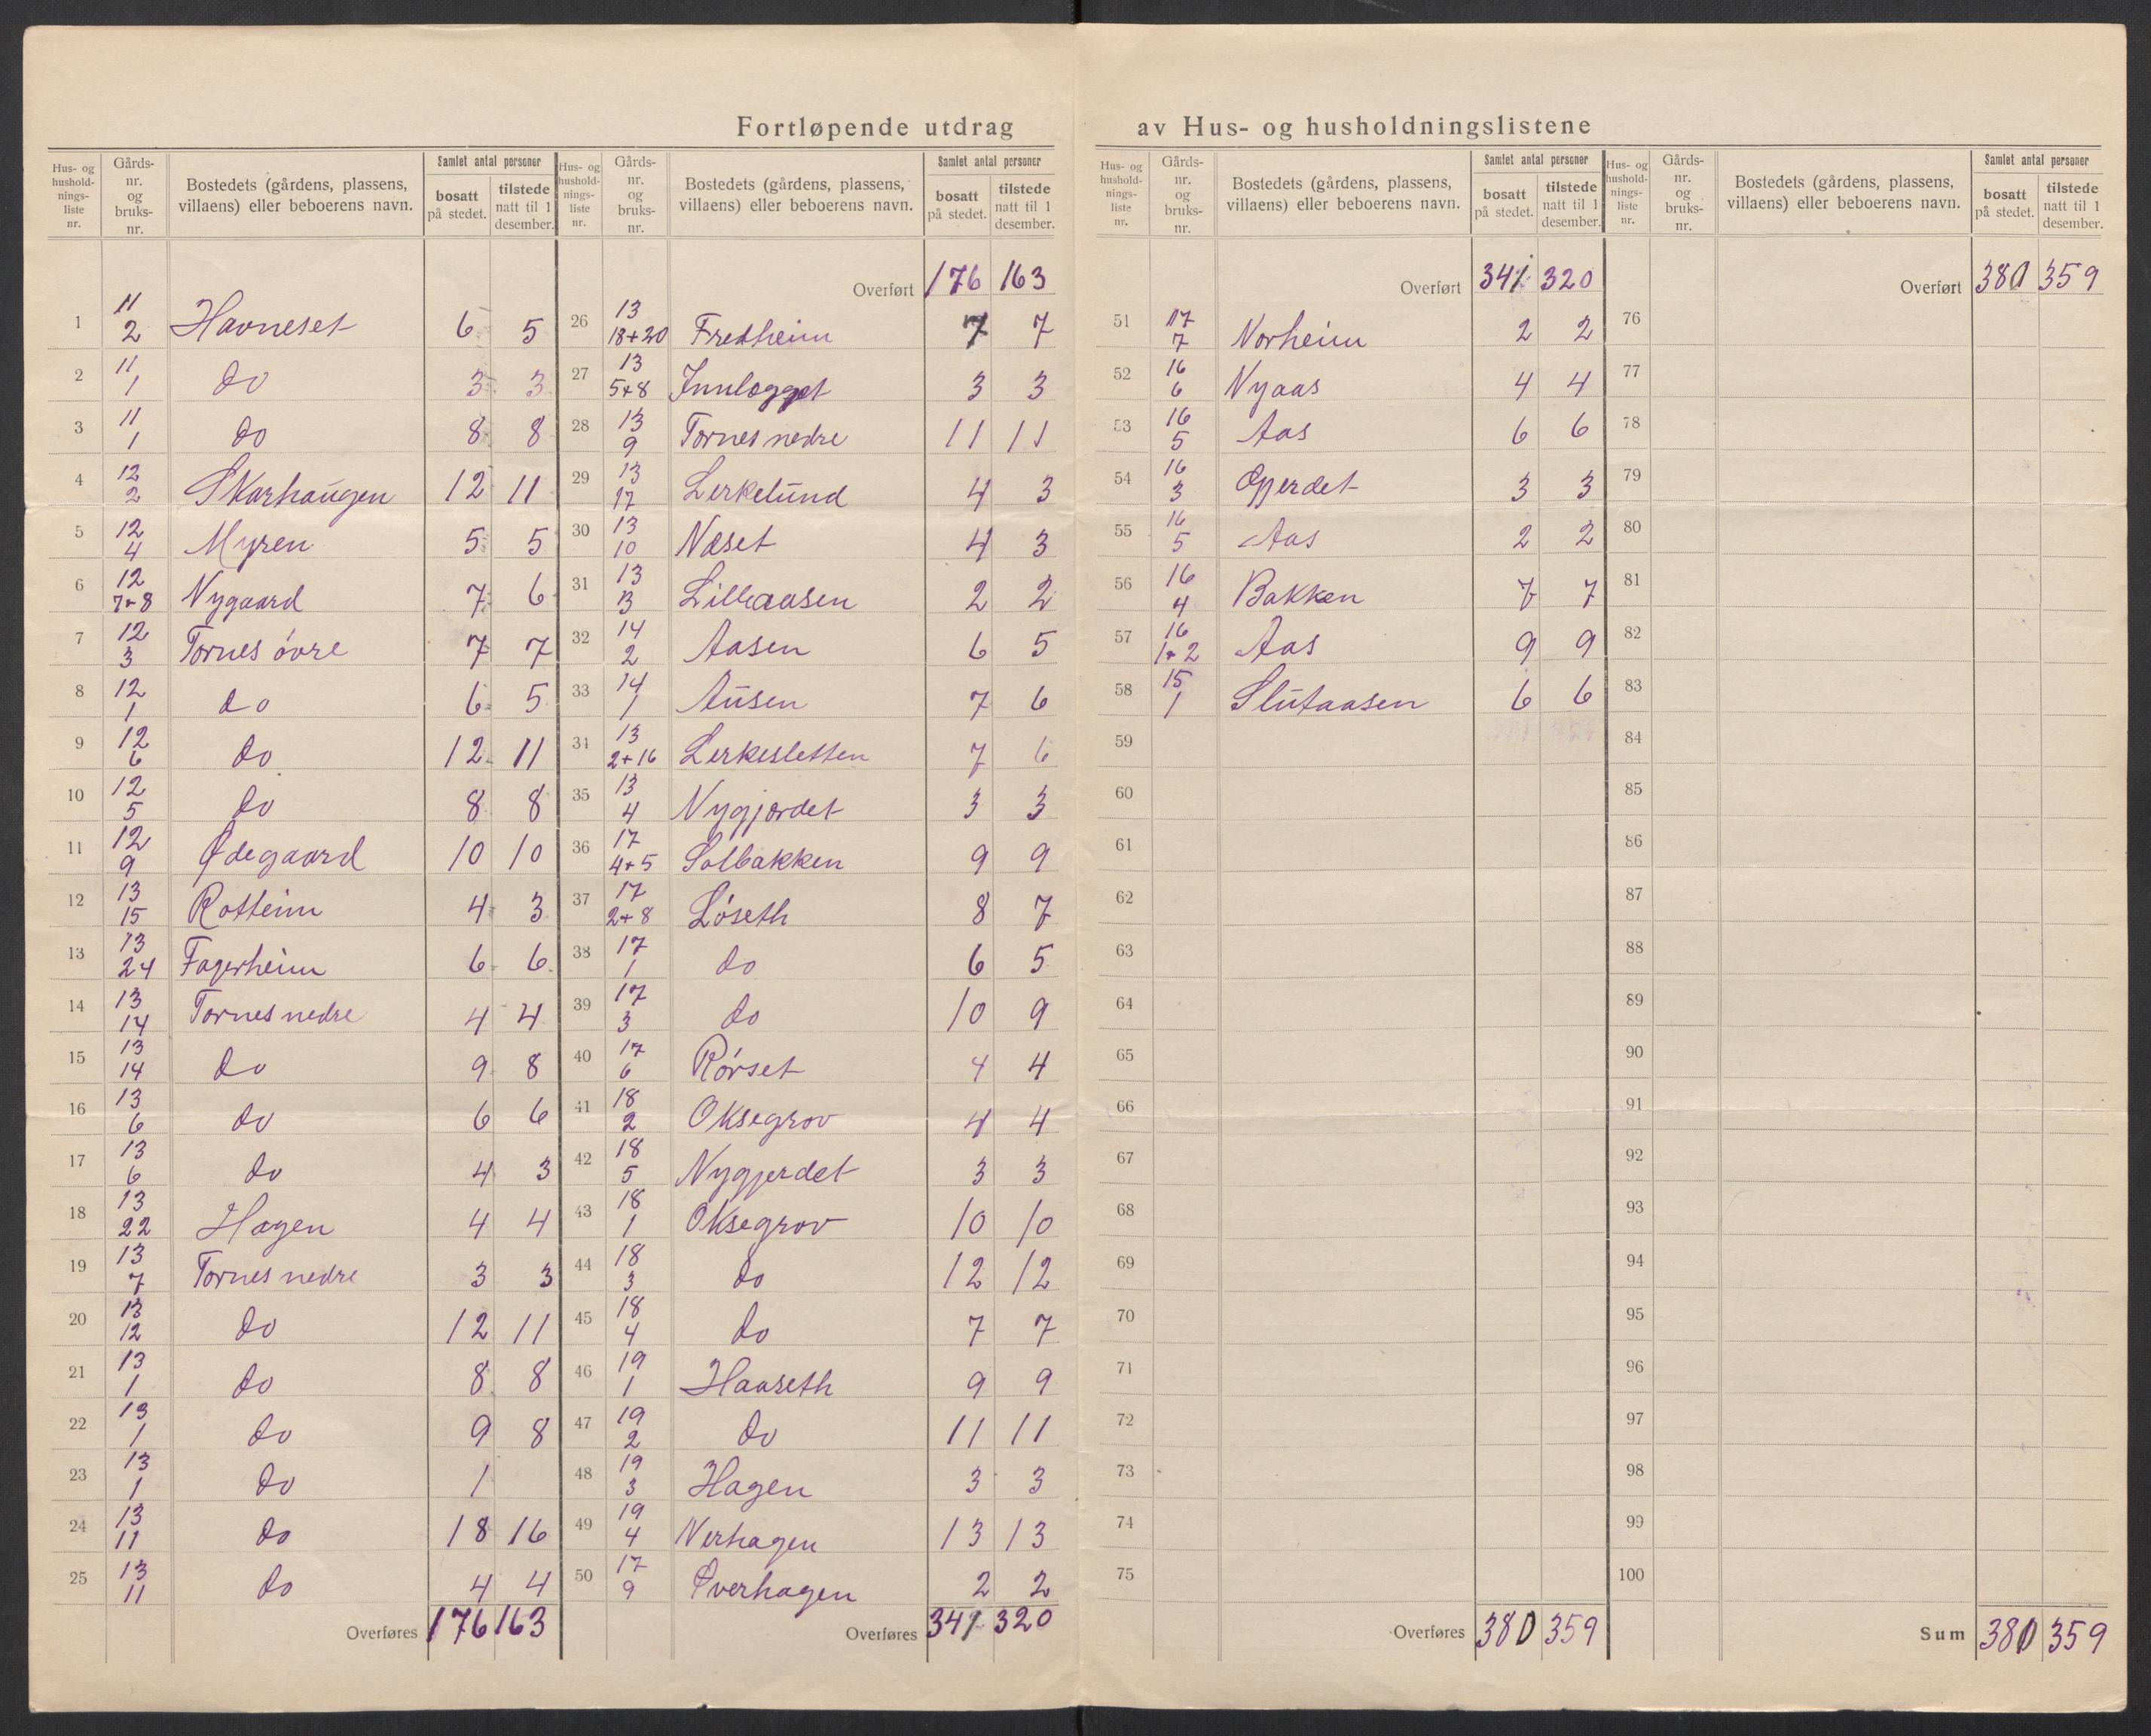 Fortløpende utdrag av Hus- og husholdningslistene
Hus- og husholdnings-liste nr. | Gårds-nr. og bruks-nr. | Bostedets (gårdens, plassens, villaens) eller beboerens navn. | Samlet antal personer | bosatt på stedet. | tilstede natt til 1 desember.
1 | 11 / 2 | Havneset | 6 | 5
2 | 11 / 1 | do | 3 | 3
3 | 11 / 1 | do | 8 | 8
4 | 12 / 2 | Skarhaugen | 12 | 11
5 | 12 / 4 | Myren | 5 | 5
6 | 12 / 7+8 | Nygaard | 7 | 6
7 | 12 / 3 | Tornes óvre | 7 | 7
8 | 12 / 1 | do | 6 | 5
9 | 12 / 6 | do | 12 | 11
10 | 12 / 5 | do | 8 | 8
11 | 12 / 9 | Ødegaard | 10 | 10
12 | 13 / 15 | Rotheim | 4 | 3
13 | 13 / 24 | Fagerheim | 6 | 6
14 | 13 / 14 | Tornes nedre | 4 | 4
15 | 13 / 14 | do | 9 | 8
16 | 13 / 6 | do | 6 | 6
17 | 13 / 6 | do | 4 | 3
18 | 13 / 22 | Hagen | 4 | 4
19 | 13 / 7 | Tornes nedre | 3 | 3
20 | 13 / 12 | do | 12 | 11
21 | 13 / 1 | do | 8 | 8
22 | 13 / 1 | do | 9 | 8
23 | 13 / 1 | do | 1
24 | 13 / 11 | do | 18 | 16
25 | 13 / 11 | do | 4 | 4
Overføres 176 163
Hus- og husholdnings-liste nr. | Gårds-nr. og bruks-nr. | Bostedets (gårdens, plassens, villaens) eller beboerens navn. | Samlet antal personer | bosatt på stedet. | tilstede natt til 1 desember.
Overført 176 163
26 | 13 / 18+20 | Fredheim | 7 | 7
27 | 13 / 5+8 | Innlegget | 3 | 3
28 | 13 / 9 | Tornes nedre | 11 | 11
29 | 13 / 17 | Lerkelund | 4 | 3
30 | 13 / 10 | Næset | 4 | 3
31 | 13 / 3 | Lilleaasen | 2 | 2
32 | 14 / 2 | Aasen | 6 | 5
33 | 14 / 1 | Ausen | 7 | 6
34 | 13 / 2+16 | Lerkesletten | 7 | 6
35 | 13 / 4 | Nygjordet | 3 | 3
36 | 17 / 4+5 | Solbakken | 9 | 9
37 | 17 / 2+8 | Lóseth | 8 | 7
38 | 17 / 1 | do | 6 | 5
39 | 17 / 3 | do | 10 | 9
40 | 17 / 6 | Rórset | 4 | 4
41 | 18 / 2 | Oksegrov | 4 | 4
42 | 18 / 5 | Nygjerdet | 3 | 3
43 | 18 / 1 | Oksegrov | 10 | 10
44 | 18 / 3 | do | 12 | 12
45 | 18 / 4 | do | 7 | 7
46 | 19 / 1 | Haaseth | 9 | 9
47 | 19 / 2 | do | 11 | 11
48 | 19 / 3 | Hagen | 3 | 3
49 | 19 / 4 | Nerhagen | 13 | 13
50 | 17 / 9 | Øverhagen | 2 | 2
Overføres 341 320
Hus- og husholdnings-liste nr. | Gårds-nr. og bruks-nr. | Bostedets (gårdens, plassens, villaens) eller beboerens navn. | Samlet antal personer | bosatt på stedet. | tilstede natt til 1 desember.
Overført 341 320
51 | 17 / 7 | Norheim | 2 | 2
52 | 16 / 6 | Nyaas | 4 | 4
53 | 16 / 5 | Aas | 6 | 6
54 | 16 / 3 | Gjerdet | 3 | 3
55 | 16 / 5 | Aas | 2 | 2
56 | 16 / 4 | Bakken | 7 | 7
57 | 16 / 1+2 | Aas | 9 | 9
58 | 15 / 1 | Slutaasen | 6 | 6
59
60
61
62
63
64
65
66
67
68
69
70
71
72
73
74
75
Overføres 380 359
Hus- og husholdnings-liste nr. | Gårds-nr. og bruks-nr. | Bostedets (gårdens, plassens, villaens) eller beboerens navn. | Samlet antal personer | bosatt på stedet. | tilstede natt til 1 desember.
Overført 380 359
76
77
78
79
80
81
82
83
84
85
86
87
88
89
90
91
92
93
94
95
96
97
98
99
100
Sum 380 359